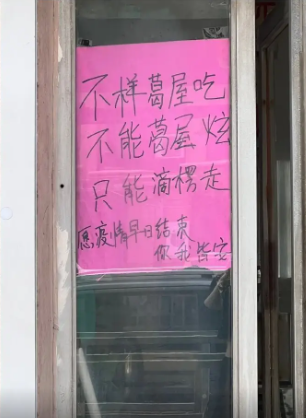 不样葛屋吃
不能葛屋炫
只能滴楞走
愿疫情早日结束
你我皆安